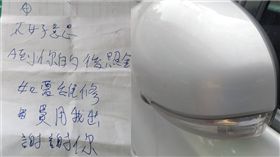 不好意思
A到你的後照鏡
如要維修
費用我出
謝謝你